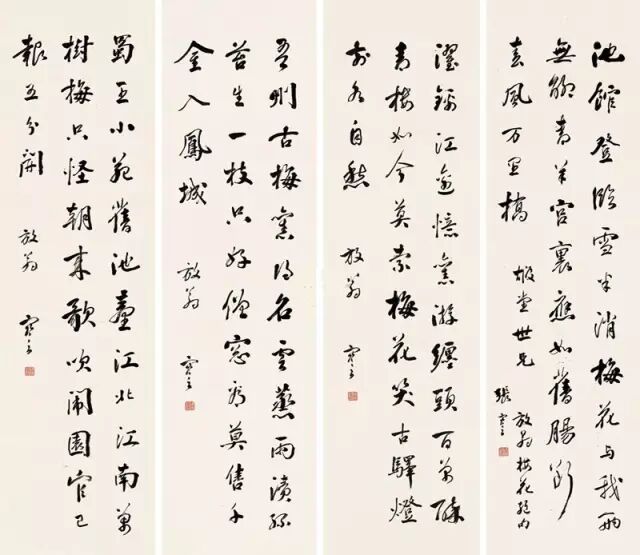 池館登臨雪半消梅花与我兩
無聊青羊宮裏應如舊腸斷
春風万里橋
堂世兄
放翁梅花絕句
張
濯錦江邊憶舊游纏頭百萬醉
青樓如今莫索梅花笑古驛燈
前各自愁 放翁
吾州古梅舊得名雲蒸雨漬綠
苔生一枝只好僧窓看莫售千
金入鳳城 放翁
蜀王小苑舊池臺江北江南萬
樹梅只怪朝来歌吹鬧園官已
報五分開 放翁